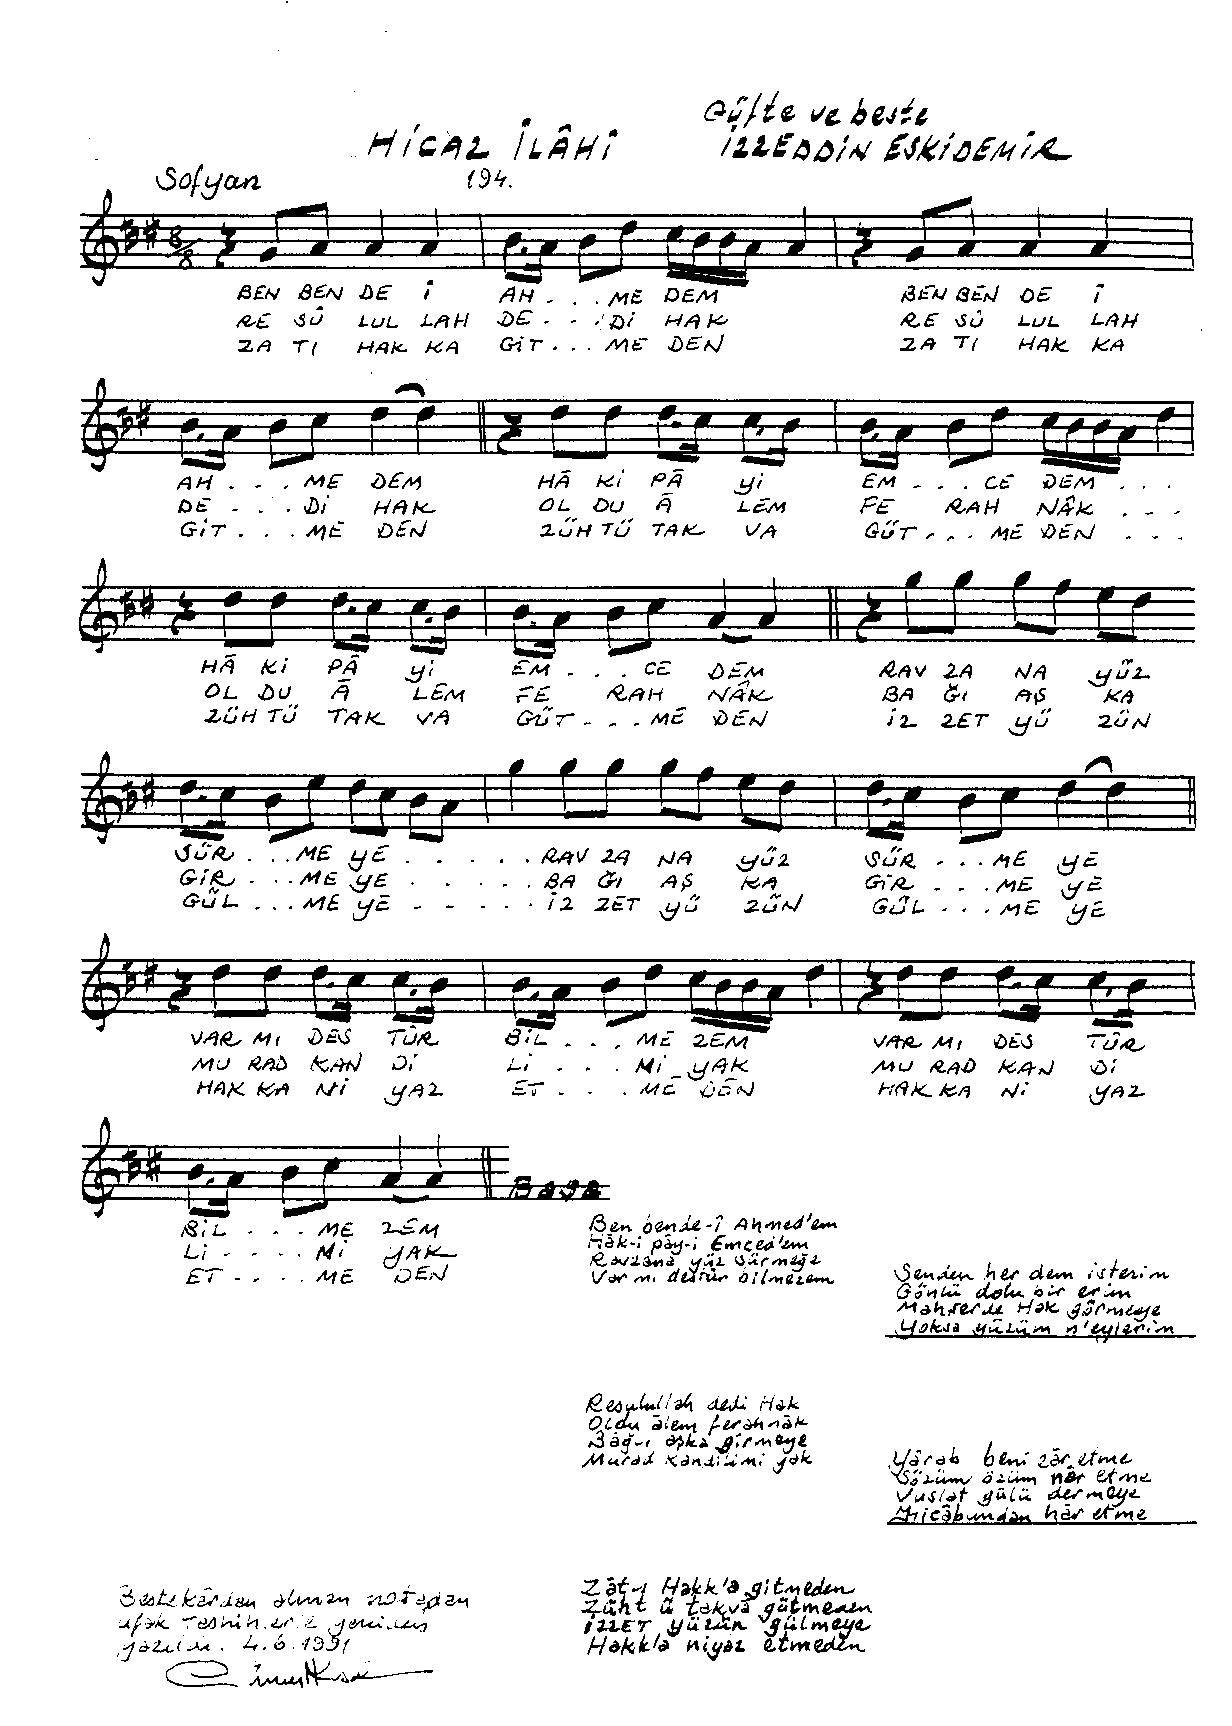 Güfte ve beste
HİCAZ İLÂHİ İZZEDDİN ESKİDEMİR
Sofyan 194.
8/8
BEN BEN DE Î AH - . . ME DEM BEN BEN DE Î
RE SÛ LUL LAH DE - . . Dİ HAK RE SÛ LUL LAH
ZA TI HAK KA GİT . . . ME DEN ZA TI HAK KA
AH . . . ME DEM HÂ Kİ PÂ Yİ EM . . . CE DEM . . .
DE - . . . Dİ HAK OL DU Â LEM FE RAH NÂK . . .
GİT . . . ME DEN ZÜH TÜ TAK VA GÜT . . . ME DEN . . .
HÂ Kİ PÂ Yİ EM . . . CE DEM RAV ZA NA YÜZ
OL DU Â LEM FE RAH NÂK BA ĞI AŞ KA
ZÜH TÜ TAK VA GÜT . . . ME DEN İZ ZET YÜ ZÜN
SÜR . . . ME YE . . . . . RAV ZA NA YÜZ SÜR . . . ME YE
GİR . . . ME YE . . . . . BA ĞI AŞ KA GİR . . . ME YE
GÜL . . . ME YE . . . . . İZ ZET YÜ ZÜN GÜL . . . ME YE
VAR MI DES TÛR BİL . . . ME ZEM VAR MI DES TÛR
MU RAD KAN Dİ Lİ . . . Mİ YAK MU RAD KAN Dİ
HAK KA Nİ YAZ ET . . . ME DEN HAK KA Nİ YAZ
Başa
BİL . . . ME ZEM
Lİ . . . . Mİ YAK
ET . . . . ME DEN
Ben bende-î Ahmed'em
Hâk-i pây-i Emced'em
Ravzana yüz sürmeğe
Var mı destûr bilmezem
Senden her dem isterim
Gönlü dolu bir erim
Mahşerde Hak görmeye
Yoksa yüzüm n'eylerim
Resulullah dedi Hak
Oldu âlem ferahnâk
Bâğ-ı aşka girmeye
Murad kandilimi yak
Yârab beni zâr etme
Sözüm özüm nâr etme
Vuslat gülü dermeye
Hicâbundan hâr etme
Zât-ı Hakk'a gitmeden
Züht ü takvâ gütmeden
İZZET yüzün gülmeye
Hakk'a niyaz etmeden
Bestekârdan alınan notadan
ufak tashihlerle yeniden
yazıldı. 4.6.1991